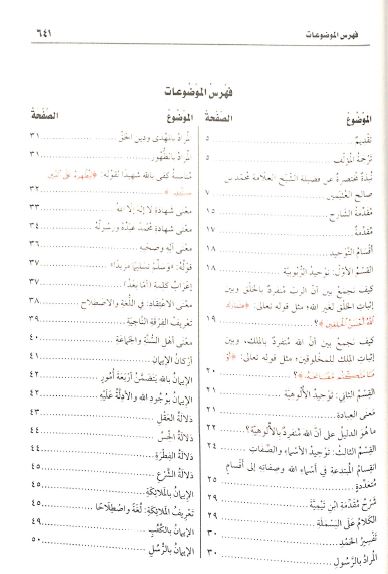 فهرس الموضوعات
٦٤١
فهرس الموضوعات
الموضوع الصفحة
تقديم ٥
ترجمة المؤلف ٥
نبذة مختصرة عن فضيلة الشيخ العلامة محمد بن
صالح العثيمين ٧
مقدمة الشارح ١٥
مقدمة ١٧
أقسام التوحيد ١٨
القسم الأول: توحيد الربوبية ١٨
كيف نجمع بين أن الرب منفرد بالخلق وبين
إثبات الخلق لغير الله؛ مثل قوله تعالى: ﴿فتبارك
الله أحسن الخالقين﴾؟ ١٩
كيف نجمع بين أن الله منفرد بالملك، وبين
إثبات الملك للمخلوقين؛ مثل قوله تعالى: ﴿أو
ما ملكتم مفاتحه﴾؟ ٢٠
القسم الثاني: توحيد الألوهية ٢١
معنى العبادة ٢١
ما هو الدليل على أن الله منفرد بالألوهية؟ ٢٢
القسم الثالث: توحيد الأسماء والصفات ٢٤
انقسام المبتدعة في أسماء الله وصفاته إلى أقسام
متعددة ٢٥
شرح مقدمة ابن تيمية ٢٩
الكلام على البسملة ٢٩
تفسير الحمد ٣٠
المراد بالرسول ٣٠
الموضوع الصفحة
المراد بالهدى ودين الحق ٣١
المراد بالظهور ٣١
مناسبة كفى بالله شهيدا لقوله: ﴿ليظهره على الدين
كله﴾ ٣٢
معنى شهادة لا إله إلا الله ٣٣
معنى شهادة محمد عبده ورسوله ٣٤
معنى آله وصحبه ٣٦
قوله: «وسلم تسليما مزيدا» ٣٧
إعراب كلمة (أما بعد) ٣٧
معنى الاعتقاد: في اللغة والاصطلاح ٣٨
تعريف الفرقة الناجية ٣٩
معنى أهل السنة والجماعة ٤٠
أركان الإيمان ٤١
الإيمان بالله يتضمن أربعة أمور ٤٢
الإيمان بوجود الله والأدلة عليه ٤٢
دلالة العقل ٤٣
دلالة الحس ٤٤
دلالة الفطرة ٤٤
دلالة الشرع ٤٥
الإيمان بالملائكة ٤٥
تعريف الملائكة: لغة واصطلاحا ٤٥
الإيمان بالكتب ٤٩
الإيمان بالرسل ٥٠